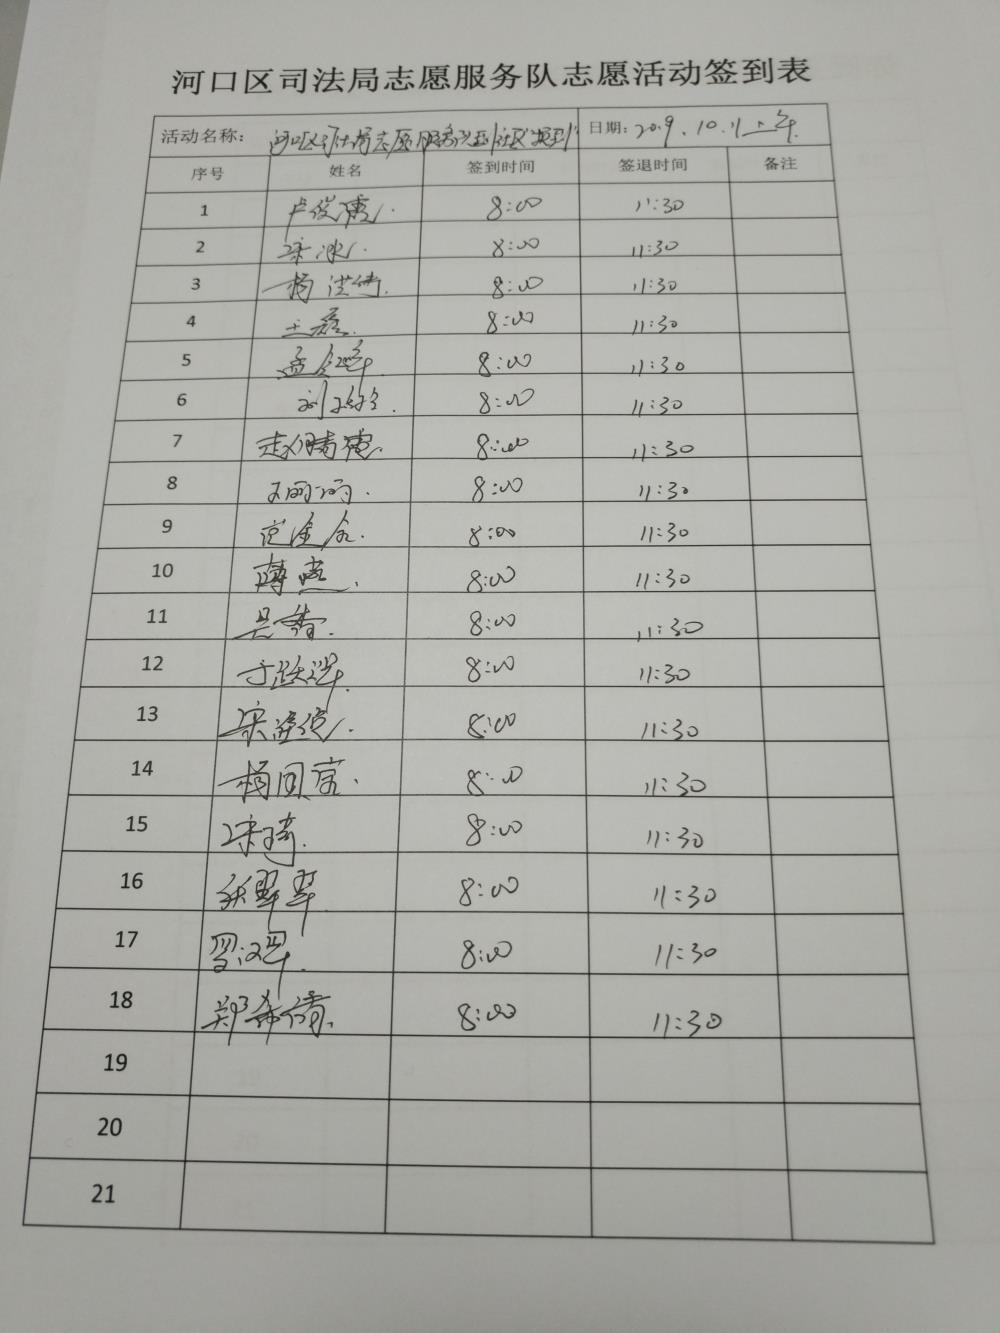 河口区司法局志愿服务队志愿活动签到表
活动名称: 河口区司法局志愿服务 日期: 2019.10.11 上午
序号 姓名 签到时间 签退时间 备注
1 8:00 11:30
2 宋冰 8:00 11:30
3 杨洪伟 8:00 11:30
4 王磊 8:00 11:30
5 孟令军 8:00 11:30
6 刘 8:00 11:30
7 赵晴雯 8:00 11:30
8 王丽丽 8:00 11:30
9 8:00 11:30
10 薄燕 8:00 11:30
11 吴 8:00 11:30
12 于跃洋 8:00 11:30
13 宋 8:00 11:30
14 杨国 8:00 11:30
15 宋琦 8:00 11:30
16 张翠翠 8:00 11:30
17 罗汉军 8:00 11:30
18 郑希倩 8:00 11:30
19
20
21